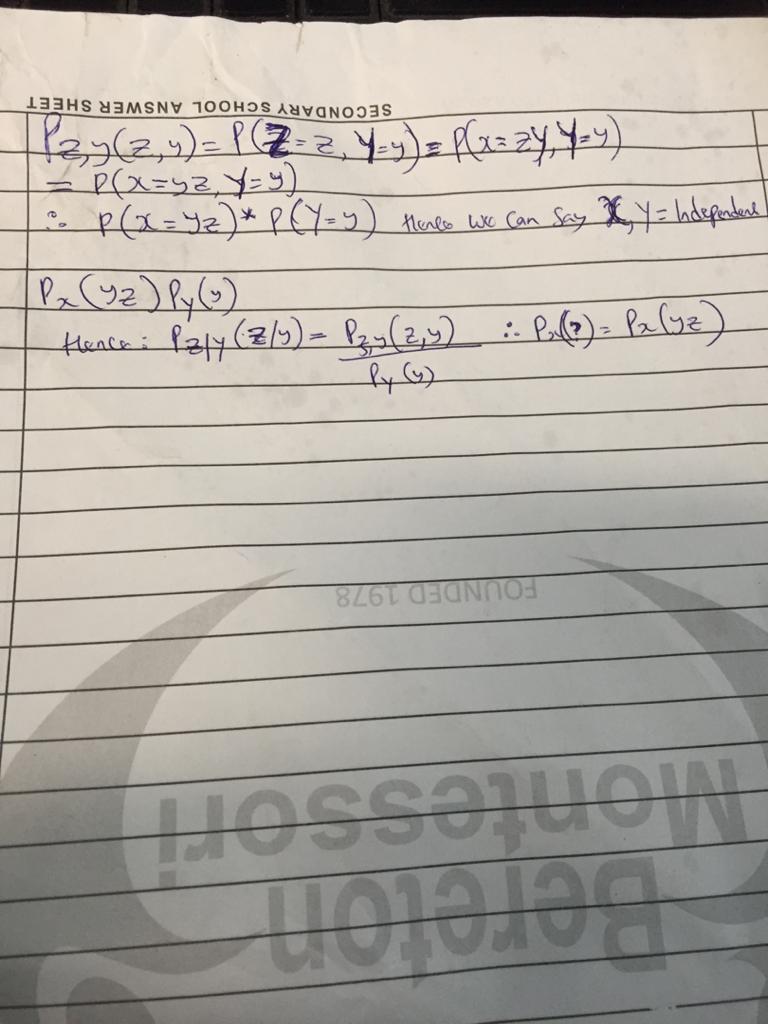 SECONDARY SCHOOL ANSWER SHEET
Pz,y(z,y) = P(Z=z, Y=y) = P(x=zY, Y=y)
= P(x=yz, Y=y)
∴ P(x=yz)* P(Y=y) Hence we can say X, Y = Independent
Px(yz) Py(y)
Hence: Pz/y(z/y) = Pz,y(z,y) / Py(y) ∴ Px(?) = Px(yz)
FOUNDED 1978
Montessori
Bereton